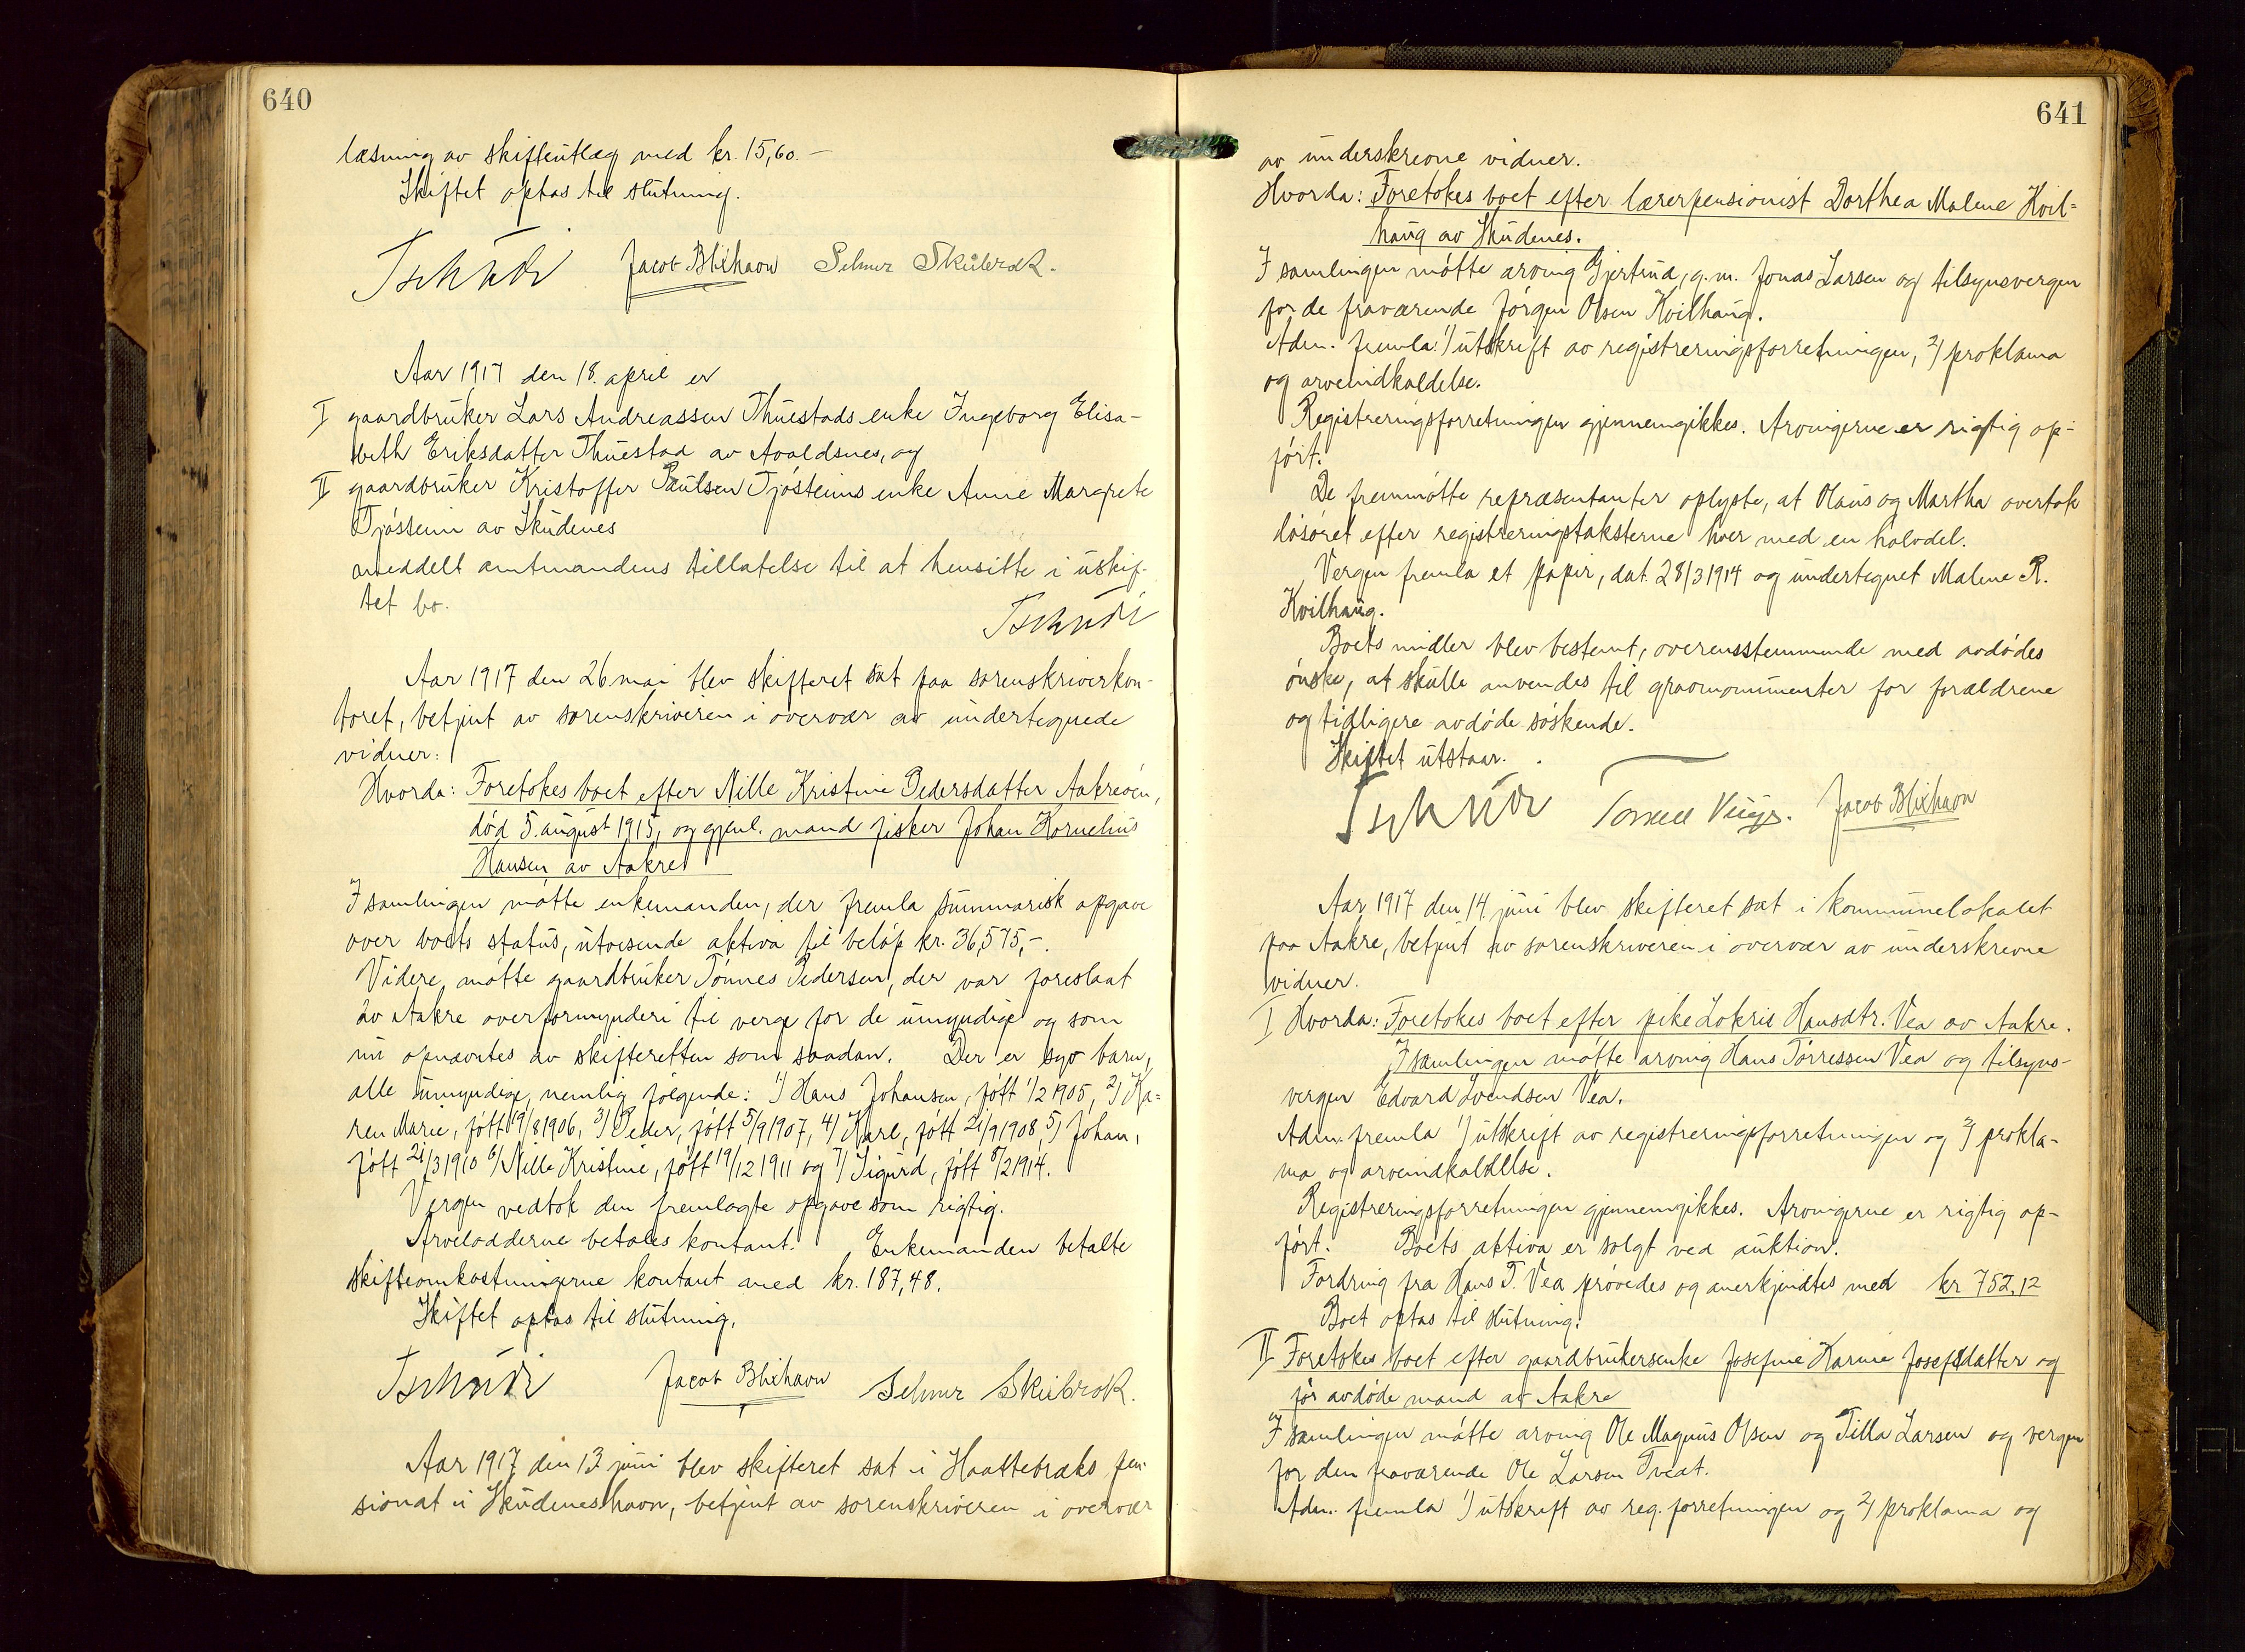 640
læsning av skifteutlæg med kr. 15,60.-
Skiftet optas til slutning.
Tschudi Jacob Blixhavn Selmer Skeibrok.
Aar 1917 den 18. april er
I gaardbruker Lars Andreassen Thuestads enke Ingeborg Elisa-
beth Eriksdatter Thuestad av Avaldsnes, og
II gaardbruker Kristoffer Paulsen Tjósteins enke Anne Margrete
Tjóstein av Skudenes
meddelt amtmandens tillatelse til at hensitte i uskif-
tet bo.
Tschudi
Aar 1917 den 26 mai blev skifteret sat paa sorenskriverkon-
toret, betjent av sorenskriveren i overvær av undertegnede
vidner:
Hvorda: Foretokes boet efter Nille Kristine Pedersdatter Aakreóen,
död 5. august 1915, og gjenl. mand fisker Johan Kornelius
Hansen av Aakre
I samlingen mótte enkemanden, der fremla summarisk opgave
over boets status, utvisende aktiva til belóp kr. 36,575,-.
Videre mótte gaardbruker Tónnes Pedersen, der var foreslaat
av Aakre overformynderi til verge for de umyndige og som
nu opnævntes av skifteretten som saadan. Der er syv barn,
alle umyndige, nemlig fólgende: 1) Hans Johansen, fótt 1/2 1905, 2) Ka-
ren Marie, fótt 19/8 1906, 3) Peder, fótt 5/9 1907, 4) Karl, fótt 21/9 1908, 5) Johan,
fótt 21/3 1910 6) Nille Kristine, fótt 19/12 1911 og 7) Sigurd, fótt 8/2 1914.
Vergen vedtok den fremlagte opgave som rigtig.
Arvelodderne betales kontant. Enkemanden betalte
skifteomkostningerne kontant med kr. 187,48.
Skiftet optas til slutning.
Tschudi Jacob Blixhavn Selmer Skeibrok.
Aar 1917 den 13 juni blev skifteret sat i Haattebræks pen-
sionat i Skudeneshavn, betjent av sorenskriveren i overvær
641
av underskrevne vidner.
Hvorda: Foretokes boet efter lærerpensionist Dorthea Malene Kvil-
haug av Skudenes.
I samlingen mótte arving Gjertrud, g.m. Jonas Larsen og tilsynsvergen
for de fraværende Jórgen Olsen Kvilhaug.
Adm. fremla 1) utskrift av registreringsforretningen, 2) proklama
og arveindkaldelse.
Registreringsforretningen gjennemgikkes. Arvingerne er rigtig op-
fórt.
De fremmótte repræsentanter oplyste, at Olaus og Martha overtok
lósóret efter registreringstaksterne hver med en halvdel.
Vergen fremla et papir, dat. 28/3 1914 og undertegnet Malene R.
Kvilhaug.
Boets midler blev bestemt, overensstemmende med avdódes
ónske, at skulle anvendes til gravmonumenter for forældrene
og tidligere avdóde sóskende.
Skiftet utstaar.
Tschudi Jacob Blixhavn
Aar 1917 den 14. juni blev skifteret sat i kommunelokalet
paa Aakre, betjent av sorenskriveren i overvær av underskrevne
vidner.
I Hvorda: Foretokes boet efter pike Lokrie Hansdtr. Vea av Aakre.
I samlingen mótte arving Hans Tórressen Vea og tilsyns-
vergen Edvard Svendsen Vea.
Adm. fremla 1) utskrift av registreringsforretningen og 2) prokla-
ma og arveindkaldelse.
Registreringsforretningen gjennemgikkes. Arvingerne er rigtig op-
fórt. Boets aktiva er solgt ved auktion.
Fordring fra Hans T. Vea próvedes og anerkjendtes med kr 752,12
Boet optas til slutning.
II Foretokes boet efter gaardbrukersenke Josefine Karine Josefsdatter og
fór avdóde mand av Aakre
I samlingen mótte arving Ole Magnus Olsen og Tilla Larsen og vergen
for den fraværende Ole Larsen Tveat.
Adm. fremla 1) utskrift av reg. forretningen og 2) proklama og